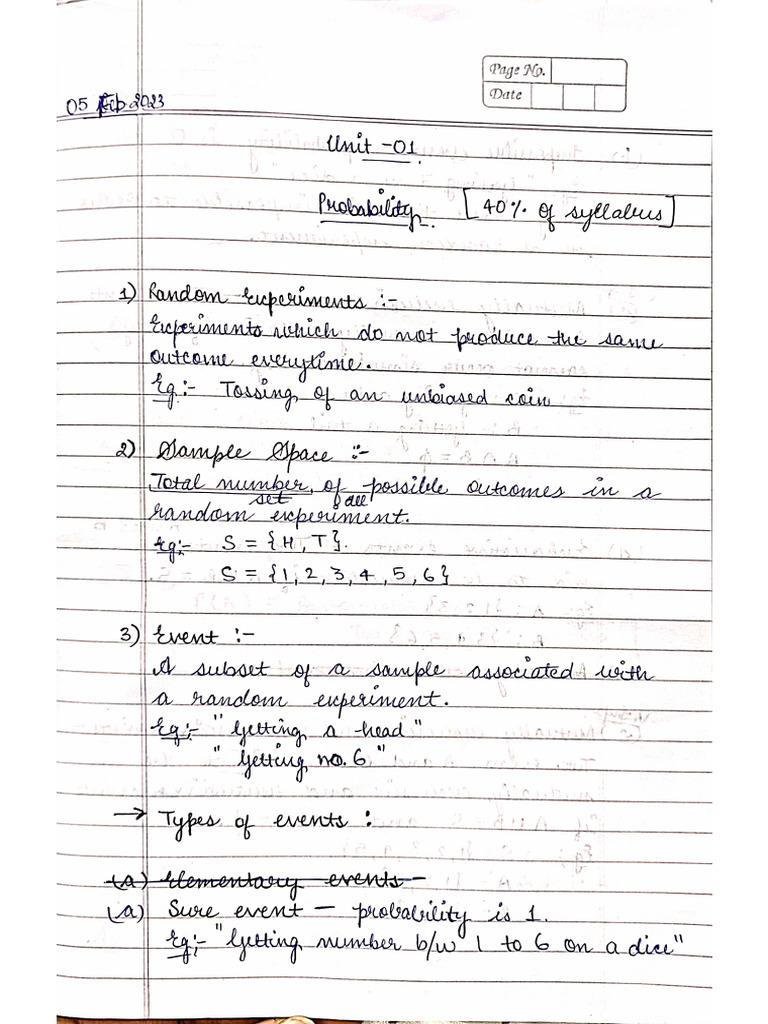 Page No.
Date
05 Feb 2023
Unit -01
Probability [40% of syllabus]
1) Random experiments :-
Experiments which do not produce the same
outcome everytime.
Eg:- Tossing of an unbiased coin
2) Sample Space :-
Total number of possible outcomes in a
set all
random experiment.
Eg:- S = {H, T}.
S = {1, 2, 3, 4, 5, 6}
3) Event :-
A subset of a sample associated with
a random experiment.
Eg:- "Getting a head"
"Getting no. 6"
→ Types of events :
(a) Elementary events -
(a) Sure event — probability is 1.
Eg:- "Getting number b/w 1 to 6 on a dice"